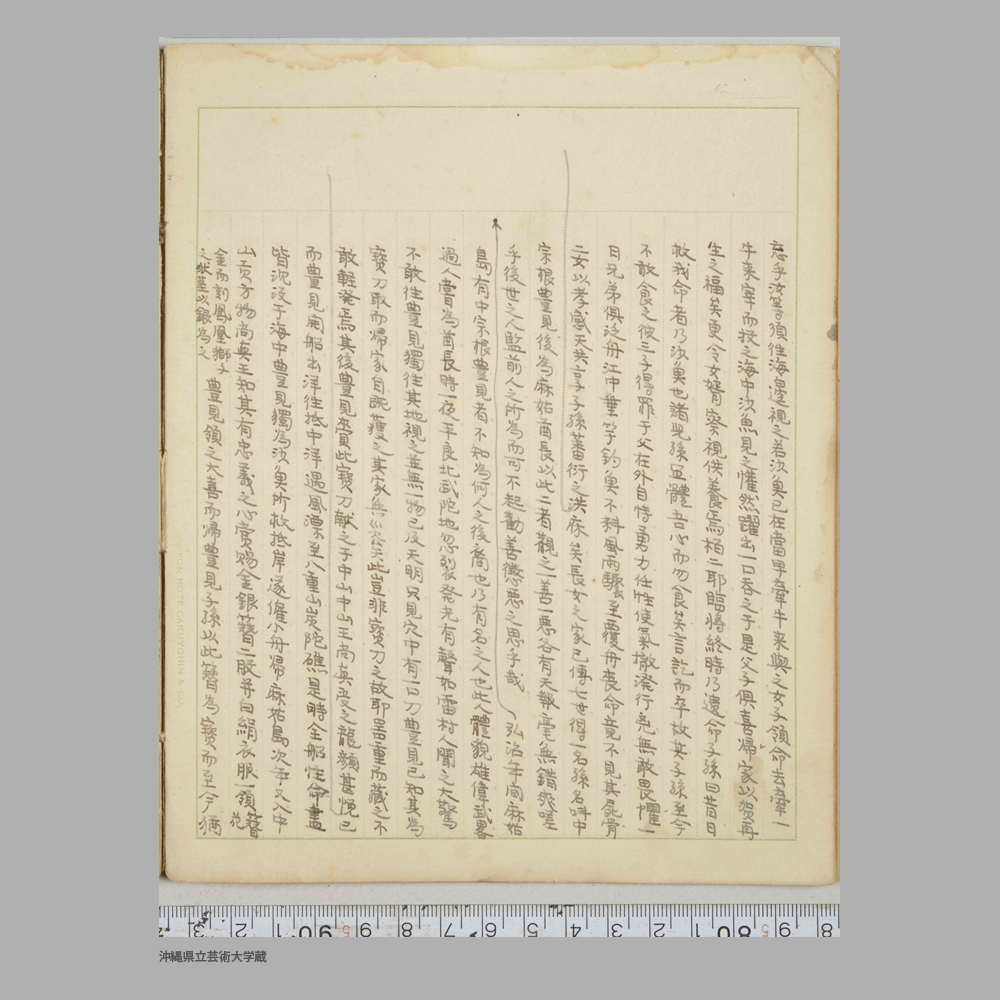 忘乎汝等須往海邊視之若汝魚已在當早牽牛来與之女子領命去牽一
牛来宰而投之海中汝魚見之懽然躍出一口吞之于是父子俱喜帰家以賀再
生之福矣更令女婿察視供養焉栢二耶臨將終時乃遺命子孫曰昔日
救我命者乃汝魚也諸児孫宜體吾心而勿食矣言訖而卒故其子孫至今
不敢食之彼三子得罪于父在外自恃勇力任性使氣撒溌行兇無敢畏懼一
日兄弟俱泛舟江中垂竿釣魚不料風雨驟至覆舟喪命竟不見其屍骨
二女以孝感天共享子孫蕃衍之洪庥矣長女之家已傳七世得一名孫名叫中
宗根豊見後為麻姑酋長以此二者觀之一善一悪各有天報毫無錯爽嗟
乎後世之人監前人之所為而可不起勸善懲悪之思乎哉 弘治年間麻姑
島有中宗根豊見者不知為何人之後裔也乃有名之人也此人體貌雄偉武畧
過人嘗為酋長時一夜平良北武陀地忽然發光有聲如雷村人聞之大驚
不敢往豊見獨往其地視之並無一物已及天明只見穴中有一口刀豊見已知其為
寳刀取而帰家自既獲之其家無災矣此豈非寳刀之故耶噐重而藏之不
敢軽発焉其後豊見賫此寳刀献之于中山中山王尚真受之龍顔甚悦已
而豊見開船出洋往抵中洋遇風漂至八重山炭陀礁是時全船性命盡
皆沉没于海中豊見獨為汝魚所救抵岸遂僱小舟帰麻姑島次年又入中
山貢方物尚真王知其有忠義之心賞賜金銀簪二股并白絹衣服一領簪花
金而刻鳳凰獅子
之状莖以銀為之 豊見領之大喜而帰豊見子孫以此簪為寳而至今猶
沖縄県立芸術大学蔵